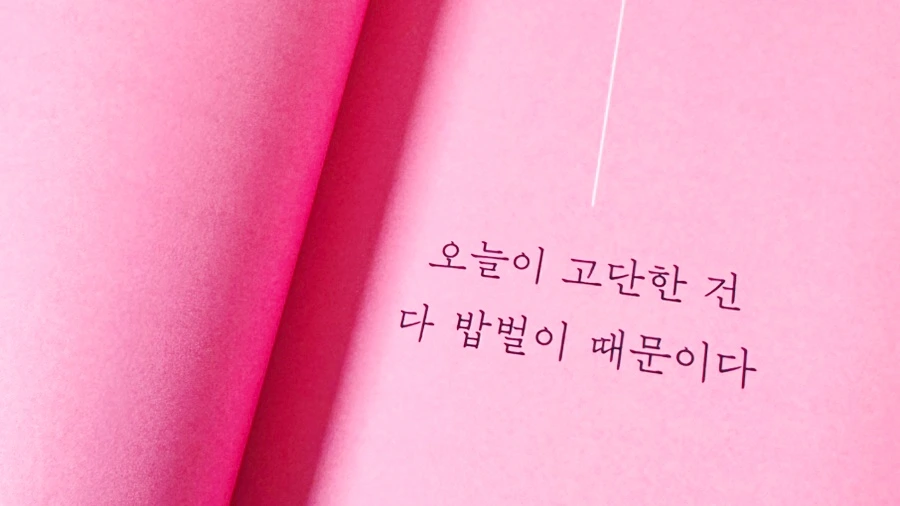 오늘이 고단한 건
다 밥벌이 때문이다